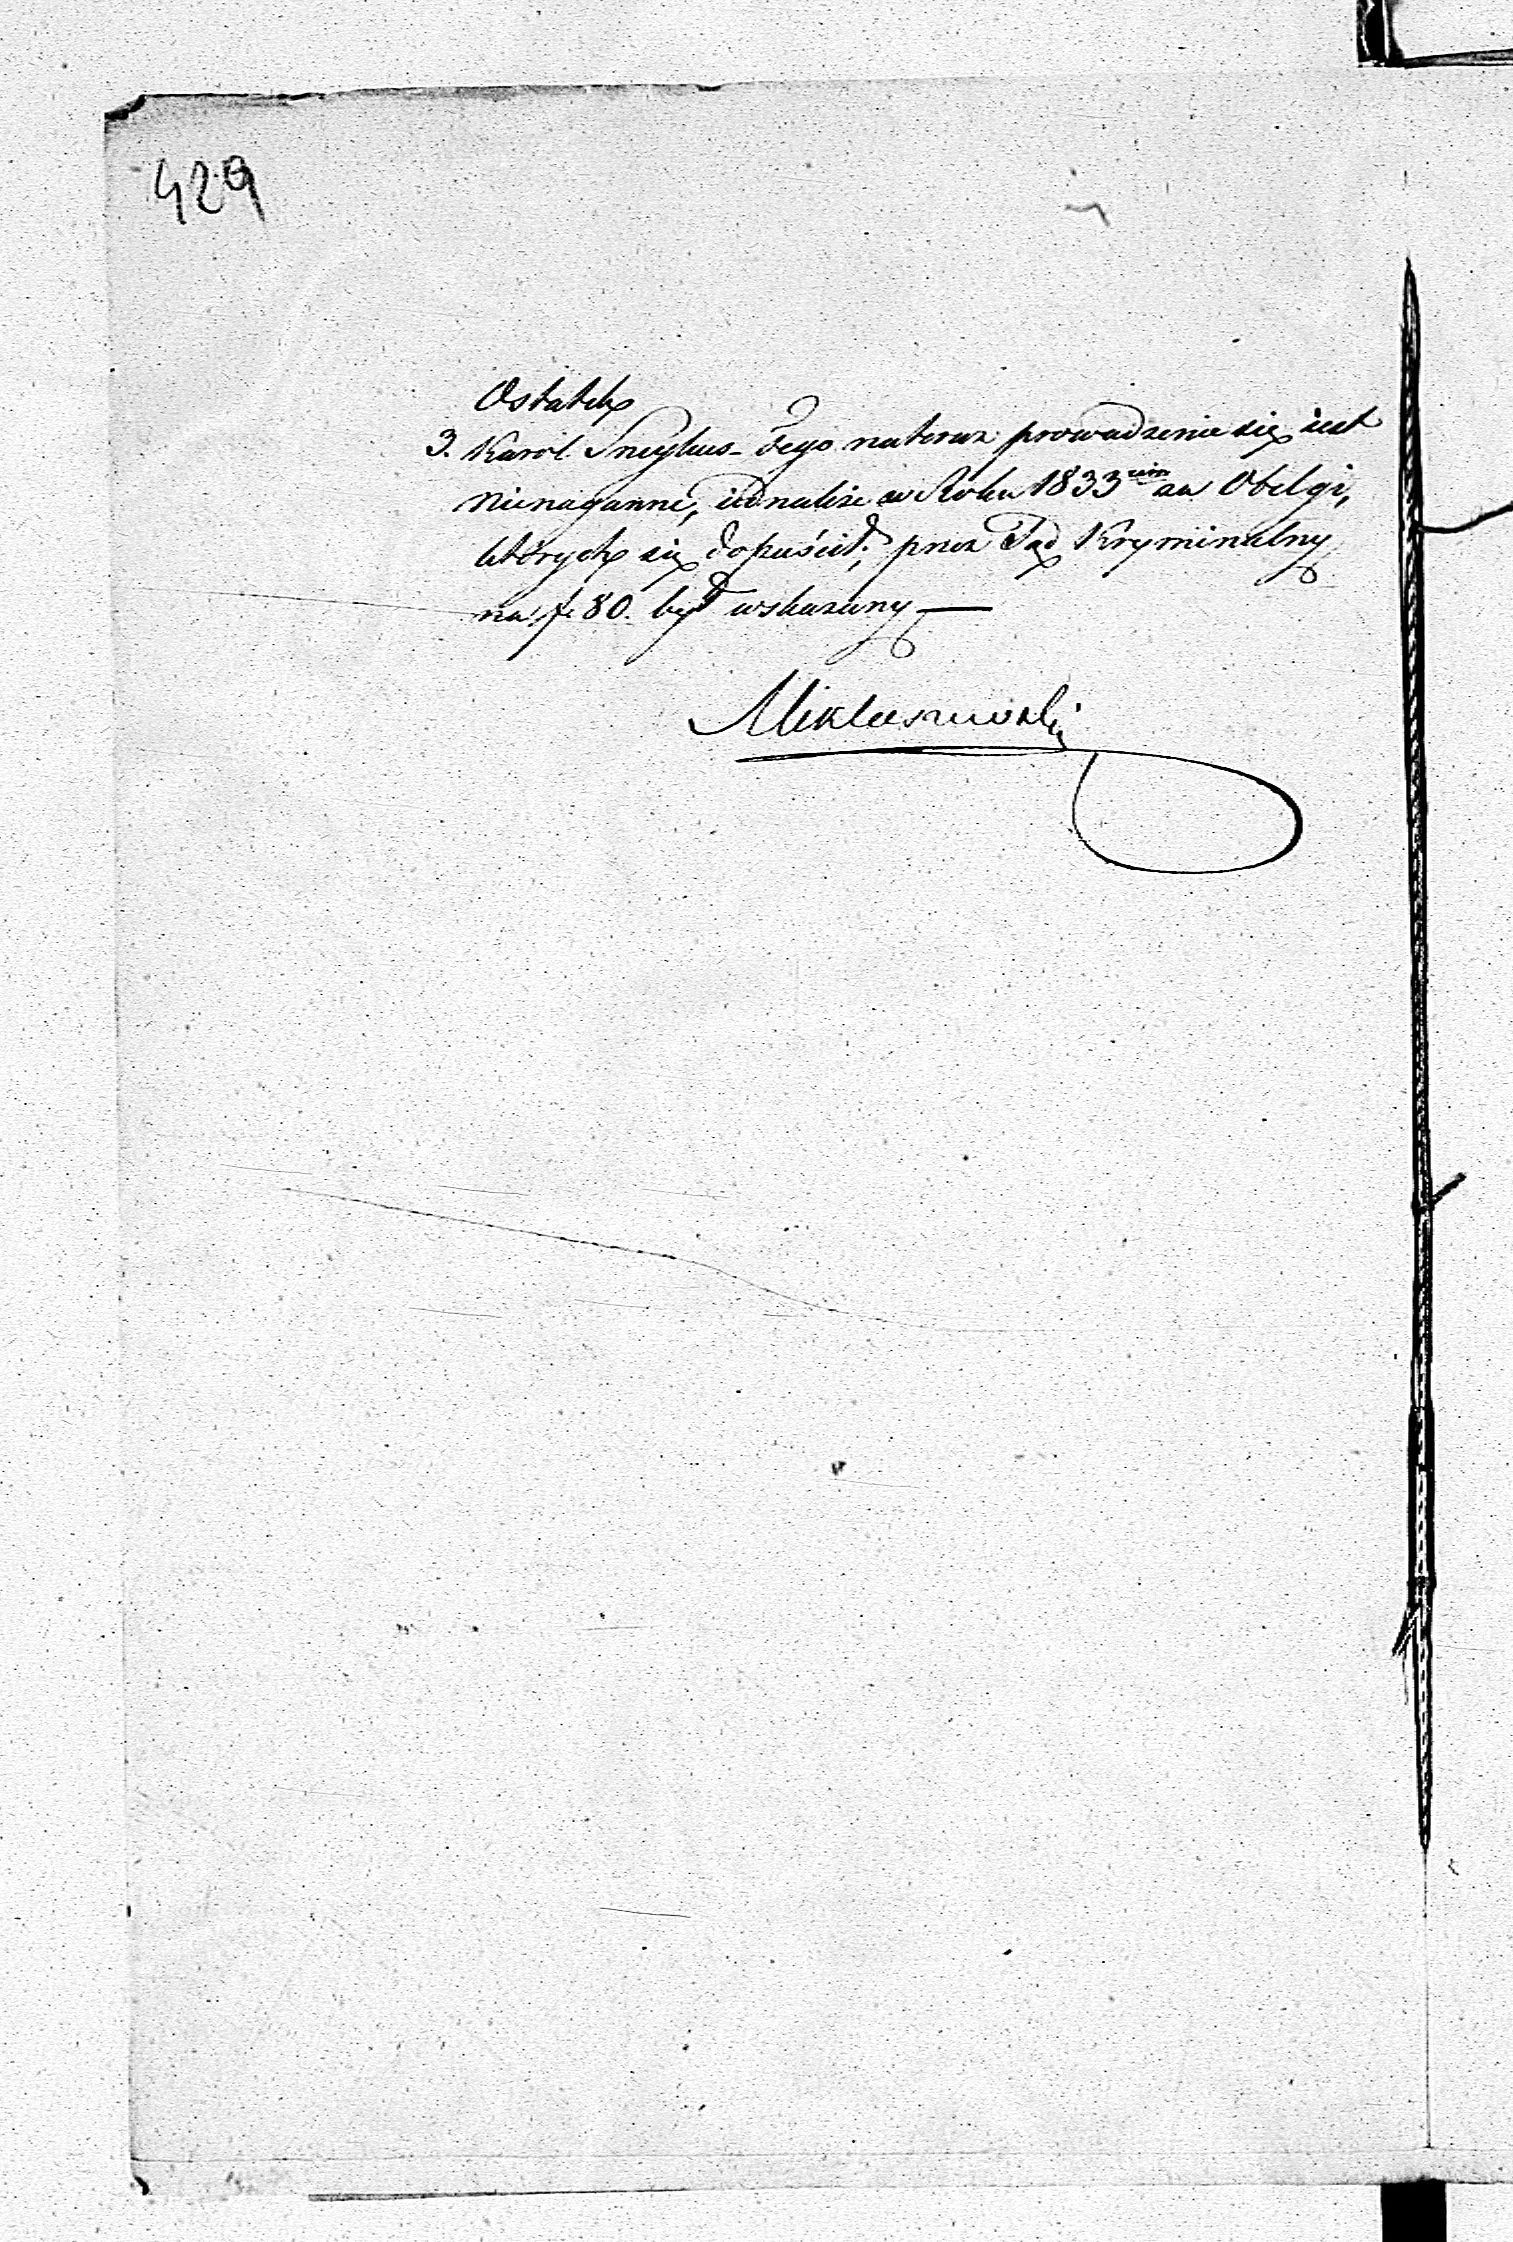 429
Ostatek
3. Karol Snuykus - Jego na teraz prowadzenie się iest
nienaganne, iednakże w Roku 1833cim za Obelgi,
których się dopuścił, przez Sąd Kryminalny
na f. 80. był wskazany —
Miklaszewski